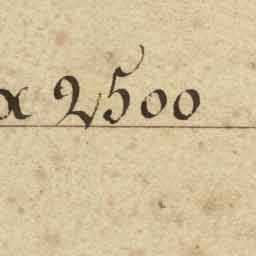 x 2500